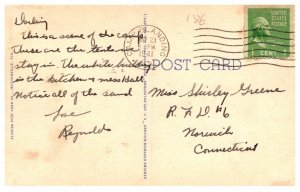 Darling
This is a scene of the camp
these are the tents we
stay in. The white building
is the kitchen & mess Hall
Notice all of the sand
Joe
Reynolds
LANDING
1941
POST CARD
UNITED STATES POSTAGE
1 CENT
Miss Shirley Greene
R. F. D. #6
Norwich
Connecticut